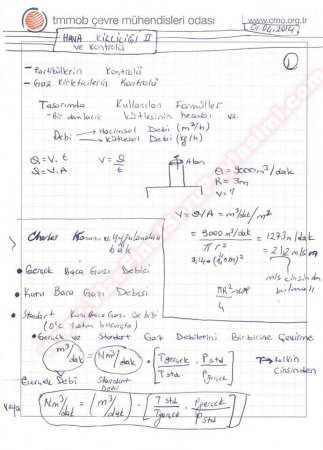 tmmob çevre mühendisleri odası
www.cmo.org.tr
01.04.2014
HAVA KİRLİLİĞİ II
ve Kontrolü
1
- Partiküllerin Kontrolü
- Gaz Kirleticilerin Kontrolü
Tasarımda Kullanılan Formüller
- Bir damlacık kütlesinin hesabı vs.
Debi → Hacimsel Debi (m³/h)
→ Kütlesel Debi (kg/h)
Q = V.t V = Q/t
Q = V.A
Alan
Q = 9000 m³/dak
R = 3m
V = ?
V = Q/A = m³/dak/m²
= 9000 m³/dak / π r² = 1273 m/dak
= 21,2 m/sn
3,14 · (1,5m)²
m/s cinsinden
bulmalı
πR²/4
Charles Kanunu ve Uygulamaları
bak
• Gerçek Baca Gazı Debisi
• Kuru Baca Gazı Debisi
• Standart Kuru Baca Gazı Debisi
(0°C 1 atm basınçta)
• Gerçek ve Standart Gaz Debilerini Birbirine Çevirme
(m³/dak) = (Nm³/dak) · [Tgerçek/Tstd · Pstd/Pgerçek]
T → Kelvin
cinsinden
Gerçek Debi Standart
Debi
veya (Nm³/dak) = (m³/dak) · [Tstd/Tgerçek · Pgerçek/Pstd]